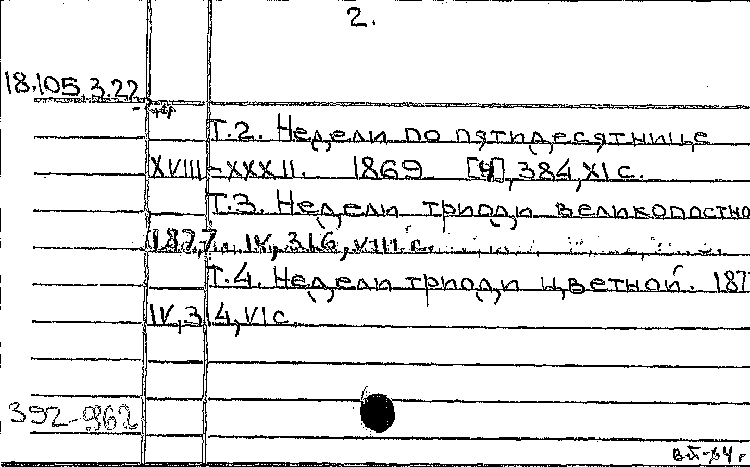 2.
18.105.3.22
Т.2. Недели по пятидесятнице
XVIII-XXXII. 1869 [4], 384, XI с.
Т.3. Недели триоди великопостно
1877. IV, 316, VIII с.
Т.4. Недели триоди цветной. 187
IV, 314, VI с.
392-962